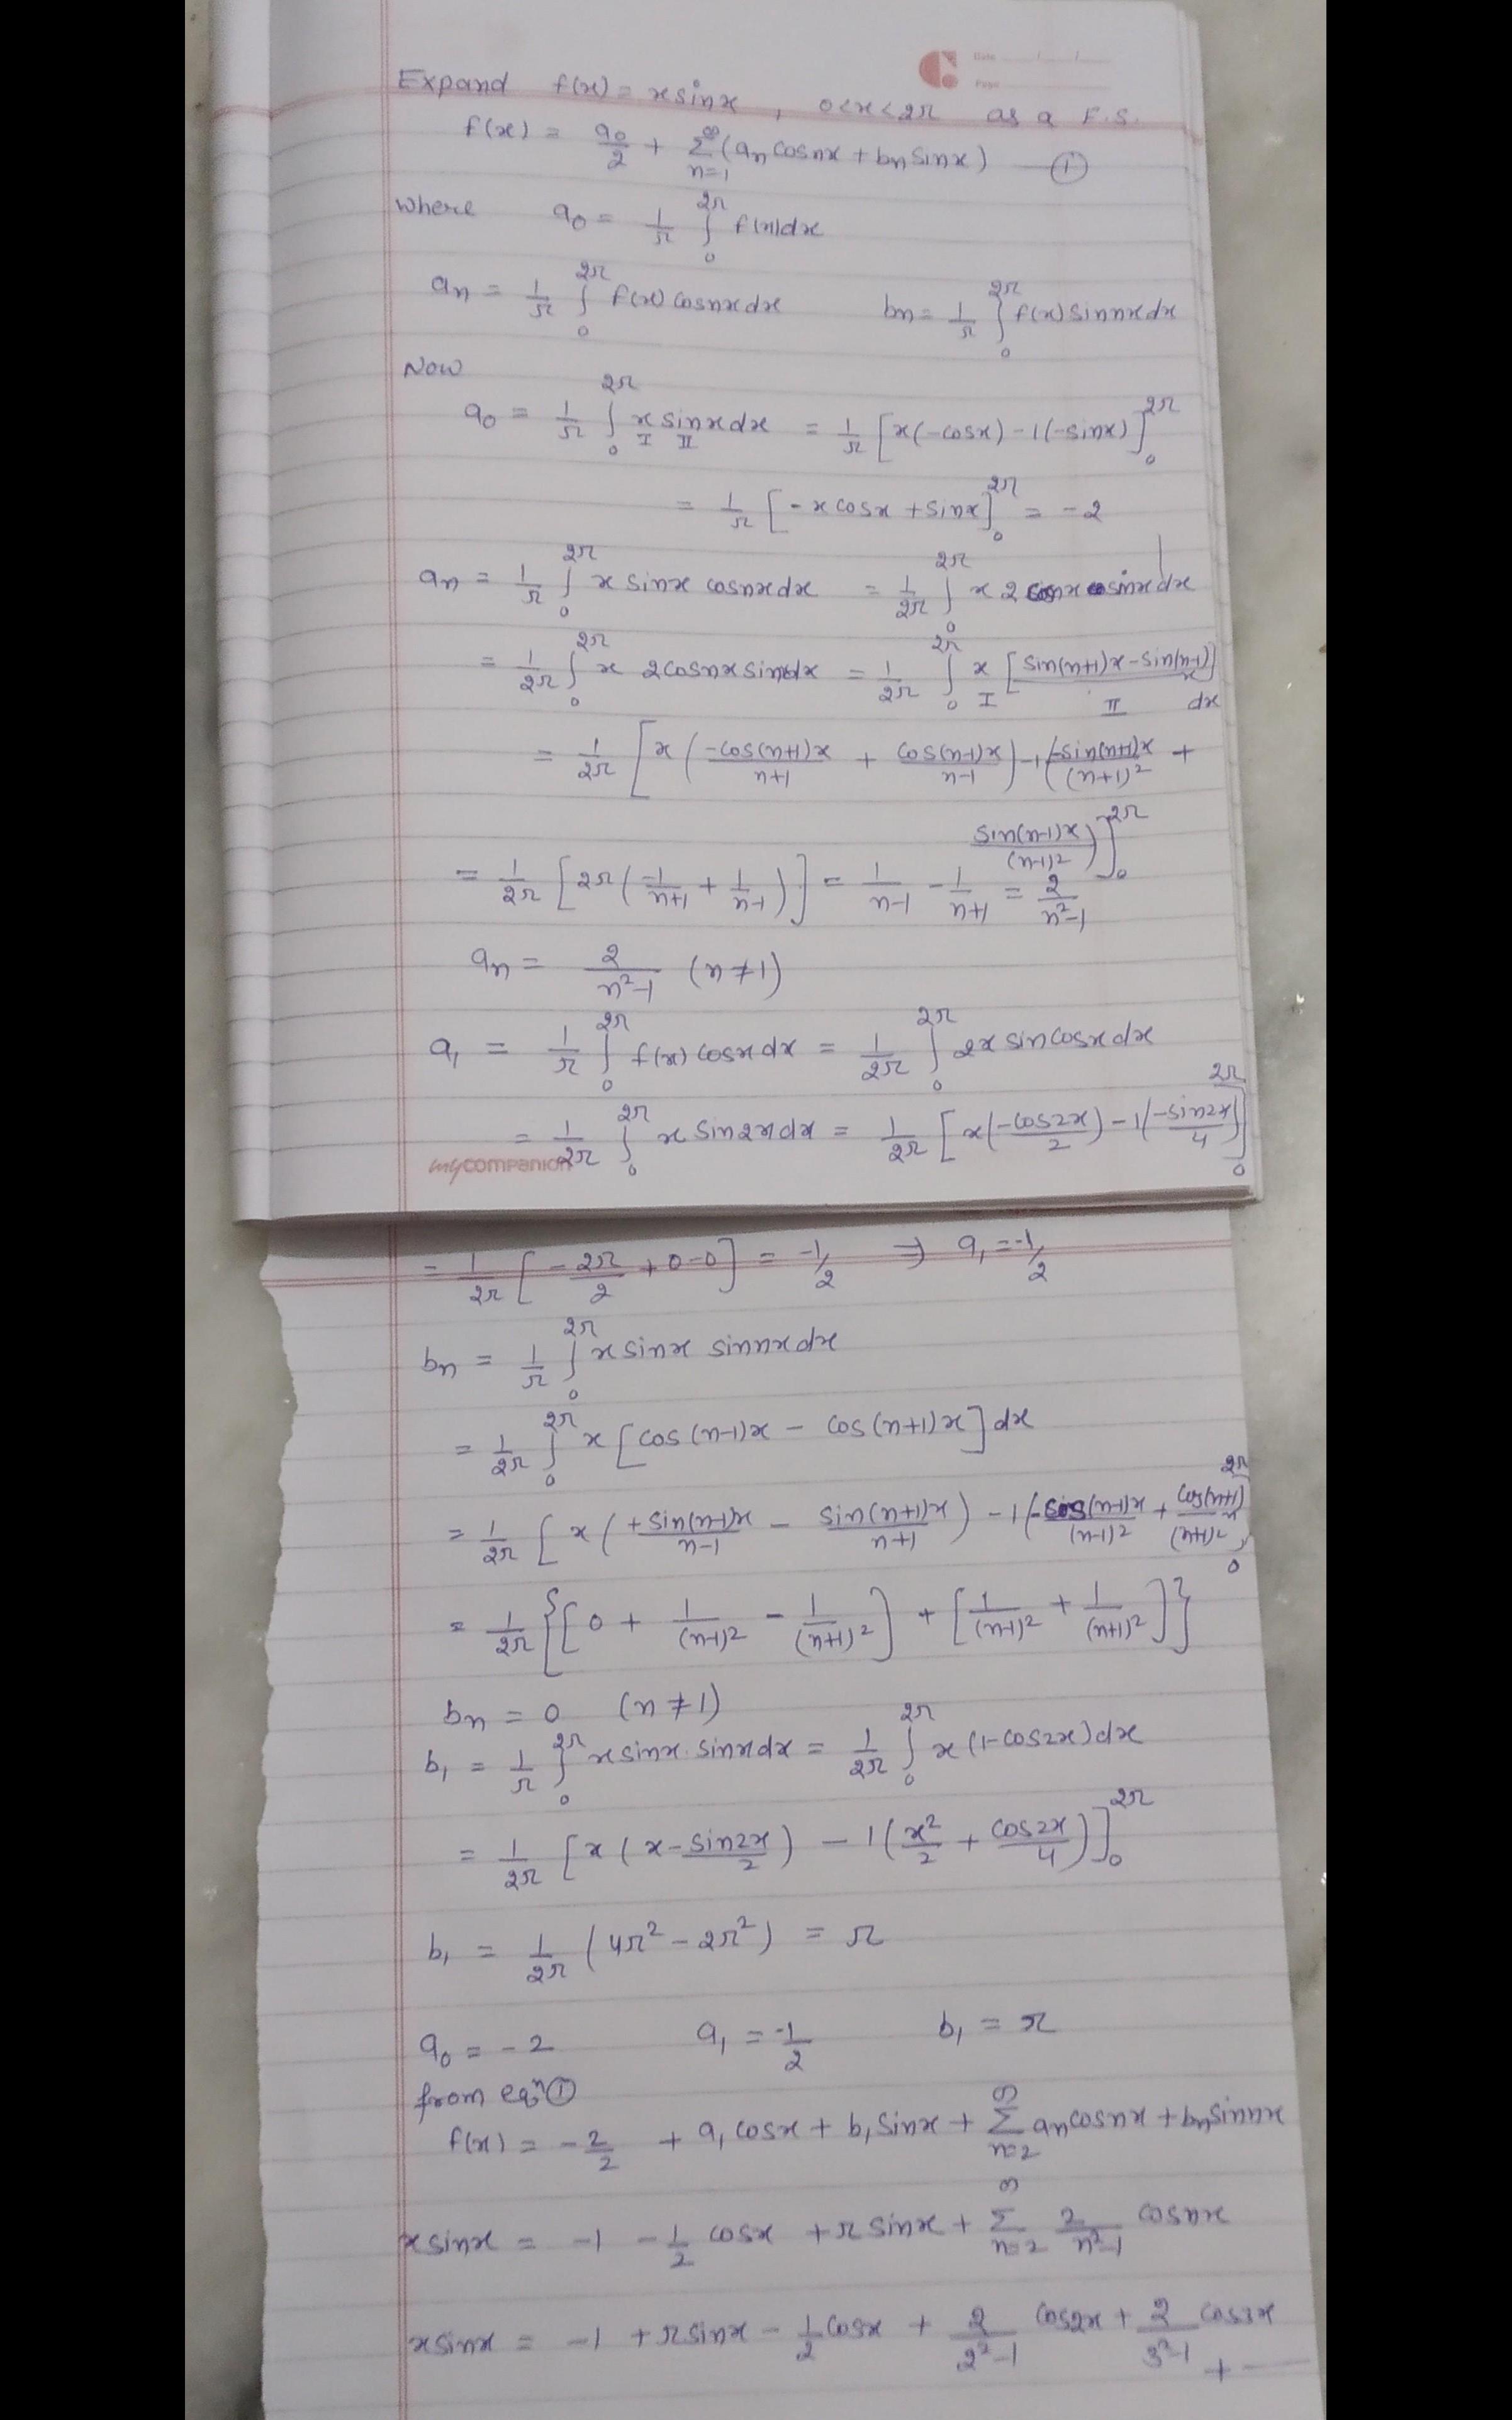 Date
Page
Expand f(x) = x sinx , 0<x<2π as a F.S.
f(x) = a₀/2 + ∞Σn=1 (an cosnx + bn sinx) — ①
where a₀ = 1/π ∫₀^2π f(x)dx
an = 1/π ∫₀^2π f(x) cosnx dx bn = 1/π ∫₀^2π f(x) sinnx dx
Now
a₀ = 1/π ∫₀^2π x sinx dx = 1/π [x(-cosx) - 1(-sinx)]₀^2π
I II
= 1/π [-x cosx + sinx]₀^2π = -2
an = 1/π ∫₀^2π x sinx cosnx dx = 1/2π ∫₀^2π x 2 cosnx sinx dx
= 1/2π ∫₀^2π x 2cosnx sinx dx = 1/2π ∫₀^2π x [sin(n+1)x - sin(n-1)x]
I II dx
= 1/2π [x(-cos(n+1)x/n+1 + cos(n-1)x/n-1) - 1(-sin(n+1)x/(n+1)² +
sin(n-1)x/(n-1)²)]₀^2π
= 1/2π [2π(-1/n+1 + 1/n-1)] = 1/n-1 - 1/n+1 = 2/n²-1
an = 2/n²-1 (n≠1)
a₁ = 1/π ∫₀^2π f(x) cosx dx = 1/2π ∫₀^2π 2x sin cosx dx
= 1/2π ∫₀^2π x sin2x dx = 1/2π [x(-cos2x/2) - 1(-sin2x/4)]₀^2π
mycompanion
= 1/2π [-2π/2 + 0-0] = -1/2 ⇒ a₁ = -1/2
bn = 1/π ∫₀^2π x sinx sinnx dx
= 1/2π ∫₀^2π x [cos(n-1)x - cos(n+1)x] dx
= 1/2π [x(+sin(n-1)x/n-1 - sin(n+1)x/n+1) - 1(-cos(n-1)x/(n-1)² + cos(n+1)x/(n+1)²)]₀^2π
= 1/2π {[0 + 1/(n-1)² - 1/(n+1)²] + [1/(n-1)² + 1/(n+1)²]}
bn = 0 (n≠1)
b₁ = 1/π ∫₀^2π x sinx. sinx dx = 1/2π ∫₀^2π x(1-cos2x)dx
= 1/2π [x(x - sin2x/2) - 1(x²/2 + cos2x/4)]₀^2π
b₁ = 1/2π (4π² - 2π²) = π
a₀ = -2 a₁ = -1/2 b₁ = π
from eqⁿ ①
f(x) = -2/2 + a₁ cosx + b₁ sinx + ∞Σn=2 an cosnx + bn sinnx
x sinx = -1 -1/2 cosx + π sinx + ∞Σn=2 2/n²-1 cosnx
x sinx = -1 + π sinx - 1/2 cosx + 2/2²-1 cos2x + 2/3²-1 cos3x
+ —